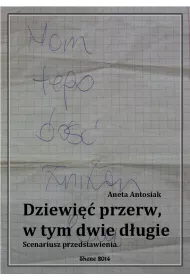 Mam
tego
dość
Aneta Antosiak
Dziewięć przerw,
w tym dwie długie
Scenariusz przedstawienia